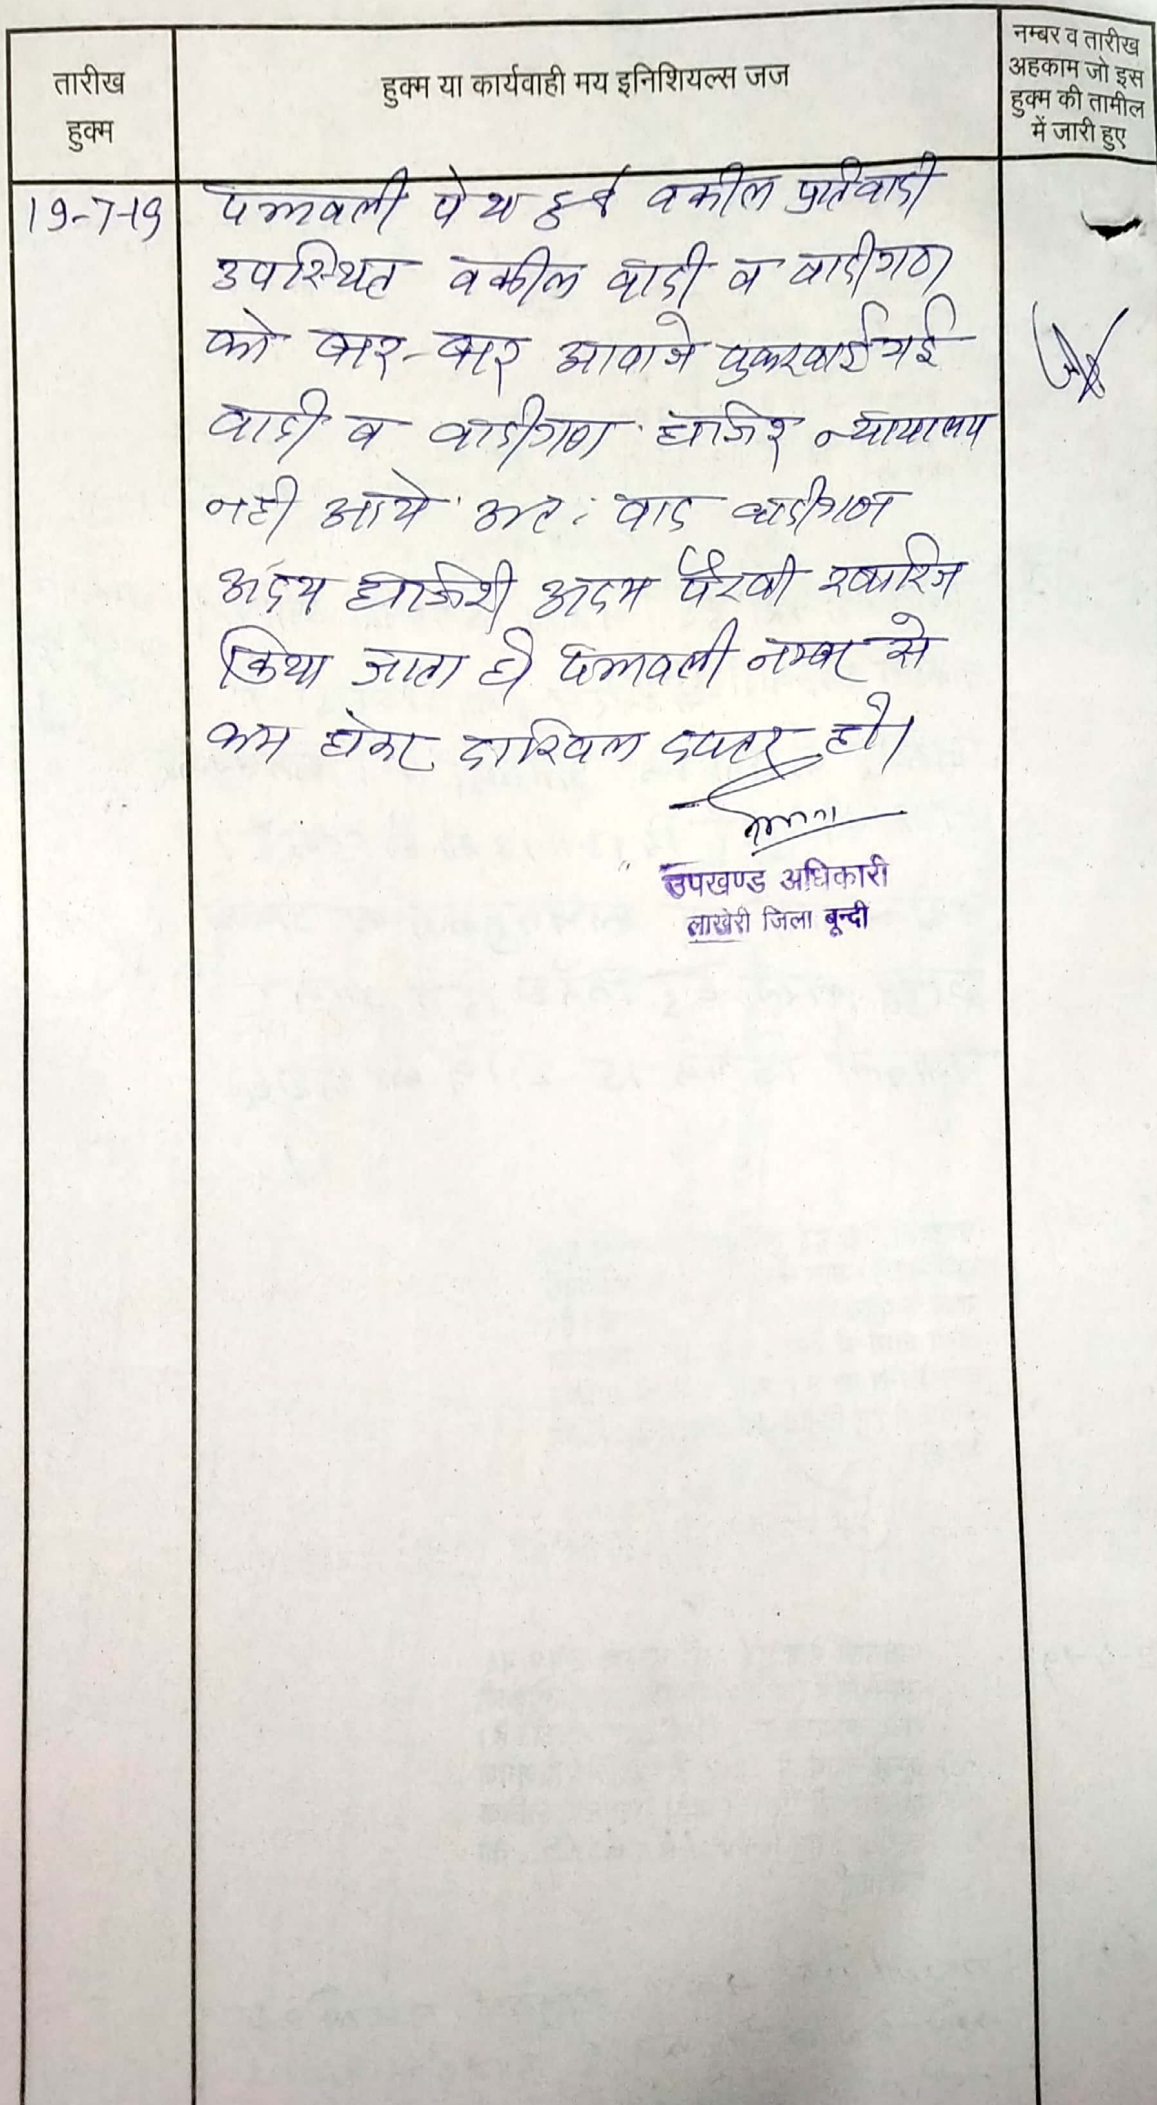 तारीख
हुक्म
हुक्म या कार्यवाही मय इनिशियल्स जज
नम्बर व तारीख
अहकाम जो इस
हुक्म की तामील
में जारी हुए
19-7-19
पत्रावली पेश हुई वकील प्रतिवादी
उपस्थित वकील वादी व वादीगण
को बार-बार आवाजे पुकरवाई गई
वादी व वादीगण हाजिर न्यायालय
नही आये अत: वाद वादीगण
अदम हाजिरी अदम पैरवी खारिज
किया जाता है पत्रावली नम्बर से
कम होकर दाखिल दफ्तर हो।
उपखण्ड अधिकारी
लाखेरी जिला बून्दी